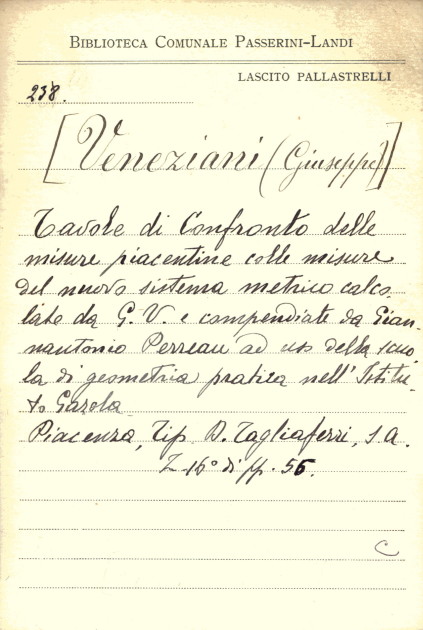 BIBLIOTECA COMUNALE PASSERINI-LANDI
LASCITO PALLASTRELLI
238.
[Veneziani (Giuseppe)]
Tavole di Confronto delle
misure piacentine colle misure
del nuovo sistema metrico calco-
late da G. V. e compendiate da Gian-
nantonio Perreau ad uso della scuo-
la di geometria pratica nell' Istitu-
to Gazola
Piacenza, Tip. D. Tagliaferri, s.a.
16° di pp. 56.
C